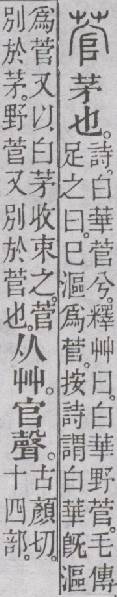 菅茅也。詩。白華菅兮。釋艸曰。白華野菅。毛傳
足之曰。巳漚爲菅。按詩謂白華旣漚
爲菅。又以白茅收束之。菅
別於茅。野菅又別於菅也。从艸。官聲。古顏切。
十四部。